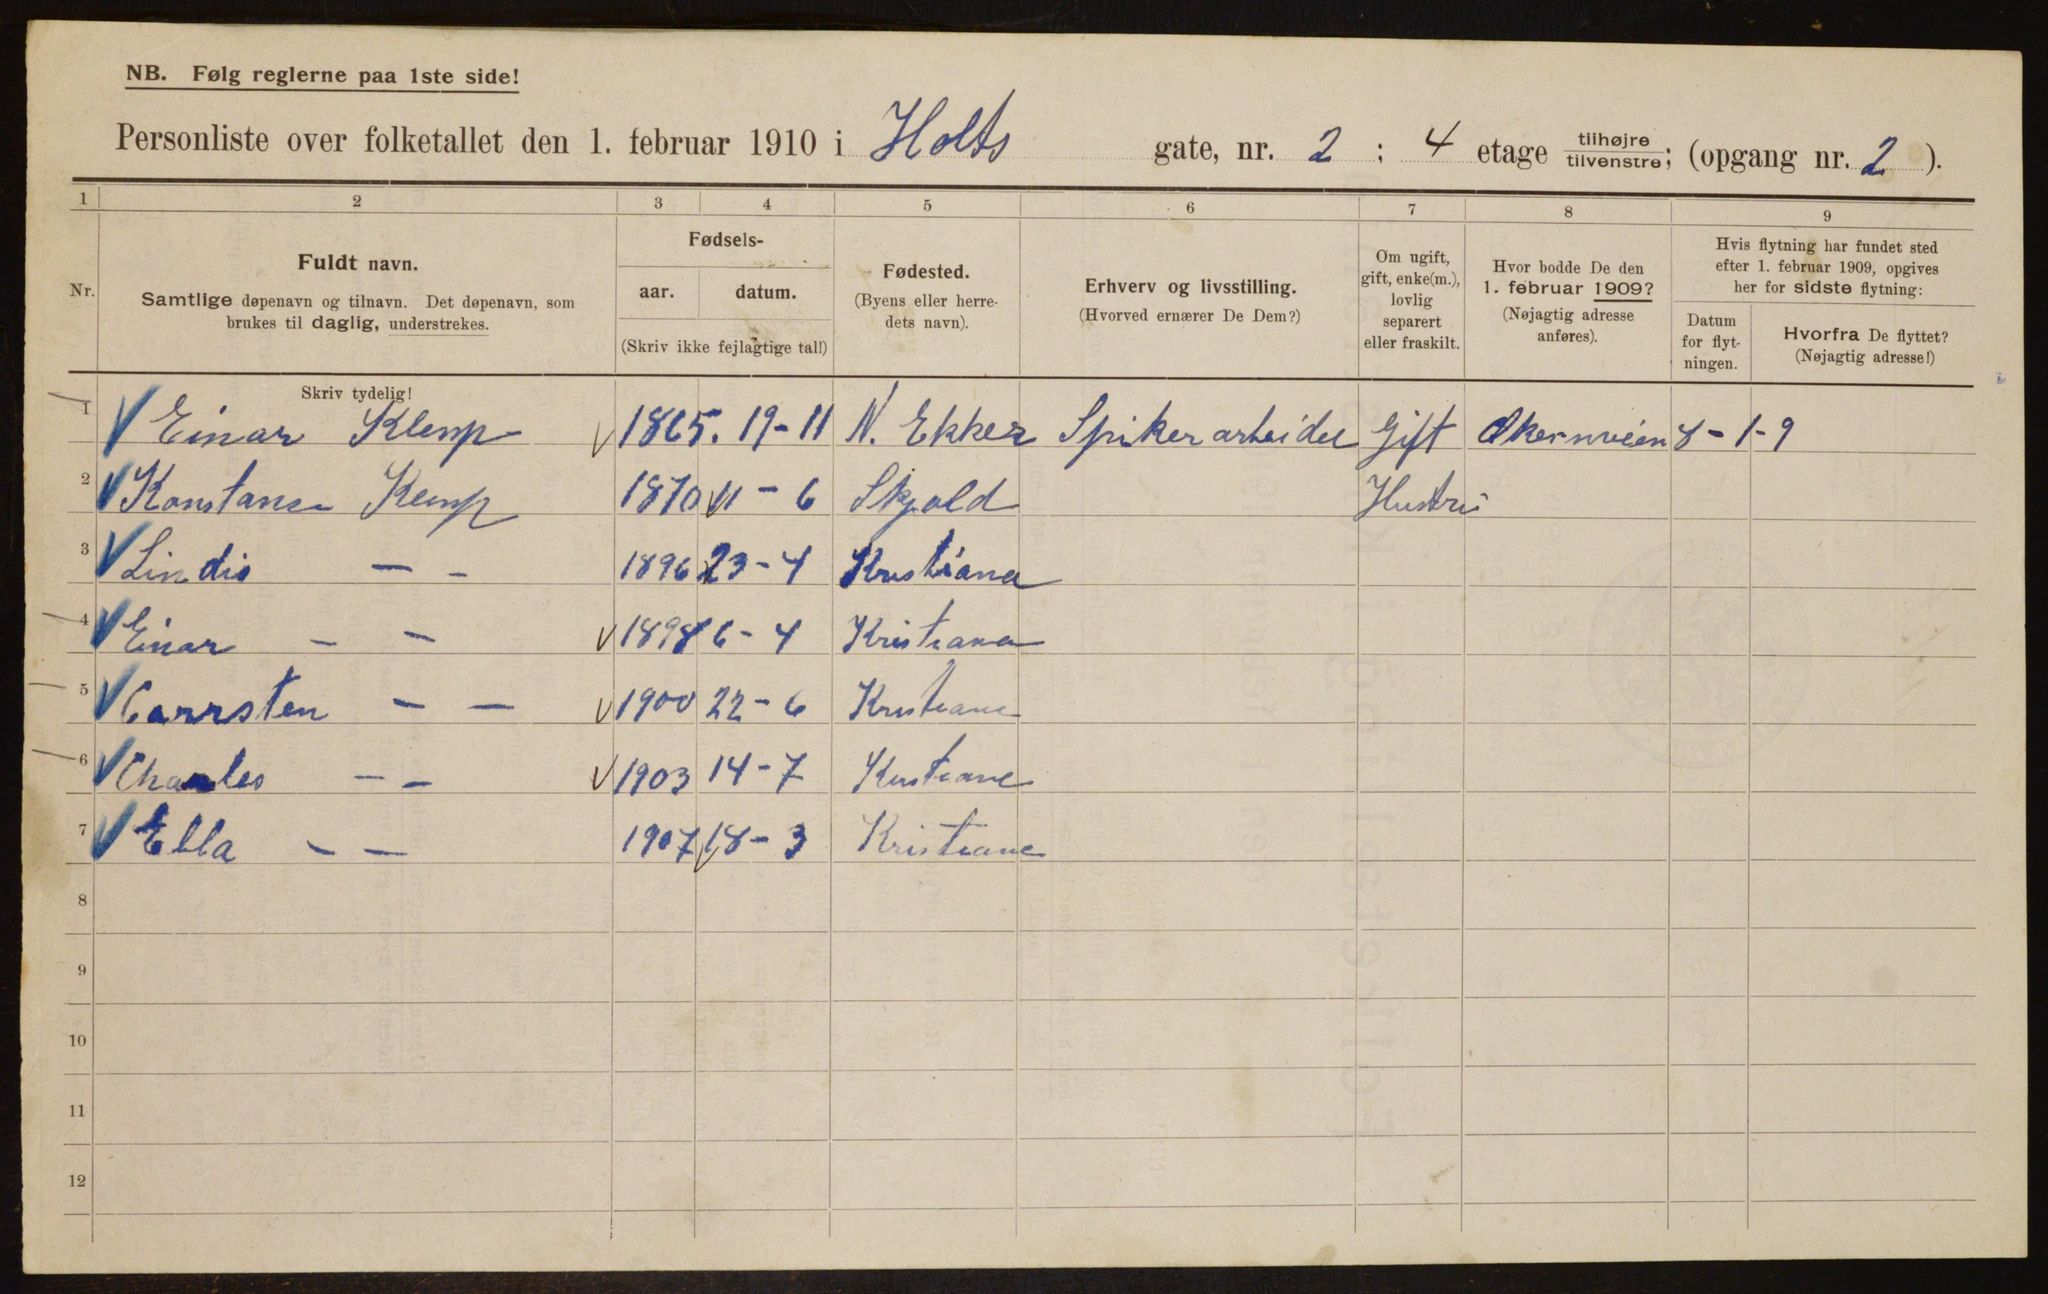 NB. Følg reglerne paa 1ste side!
Personliste over folketallet den 1. februar 1910 i Holts gate, nr. 2 ; 4 etage tilhøjre tilvenstre; (opgang nr. 2 ).
1 2 3 4 5 6 7 8 9
Nr.
Fuldt navn.
Samtlige døpenavn og tilnavn. Det døpenavn, som
brukes til daglig, understrekes.
Skriv tydelig!
Fødsels-
aar. datum.
(Skriv ikke fejlagtige tal!)
Fødested.
(Byens eller herre-
dets navn).
Erhverv og livsstilling.
(Hvorved ernærer De Dem?)
Om ugift,
gift, enke(m.),
lovlig
separert
eller fraskilt.
Hvor bodde De den
1. februar 1909?
(Nøjagtig adresse
anføres).
Hvis flytning har fundet sted
efter 1. februar 1909, opgives
her for sidste flytning:
Datum
for flyt-
ningen.
Hvorfra De flyttet?
(Nøjagtig adresse!)
1 Einar Klemp 1865. 19-11 N. Ekker Spikerarbeider Gift Økernveien 8-1-9
2 Konstanse Kemp 1870 11-6 Skjold Hustru
3 Lindis — - 1896 23-4 Kristiana
4 Einar - - 1898 6-4 Kristiana
5 Carrsten — — 1900 22-6 Kristiane
6 Charles - - 1903 14-7 Kristiane
7 Ella - - 1907 18-3 Kristiane
8
9
10
11
12